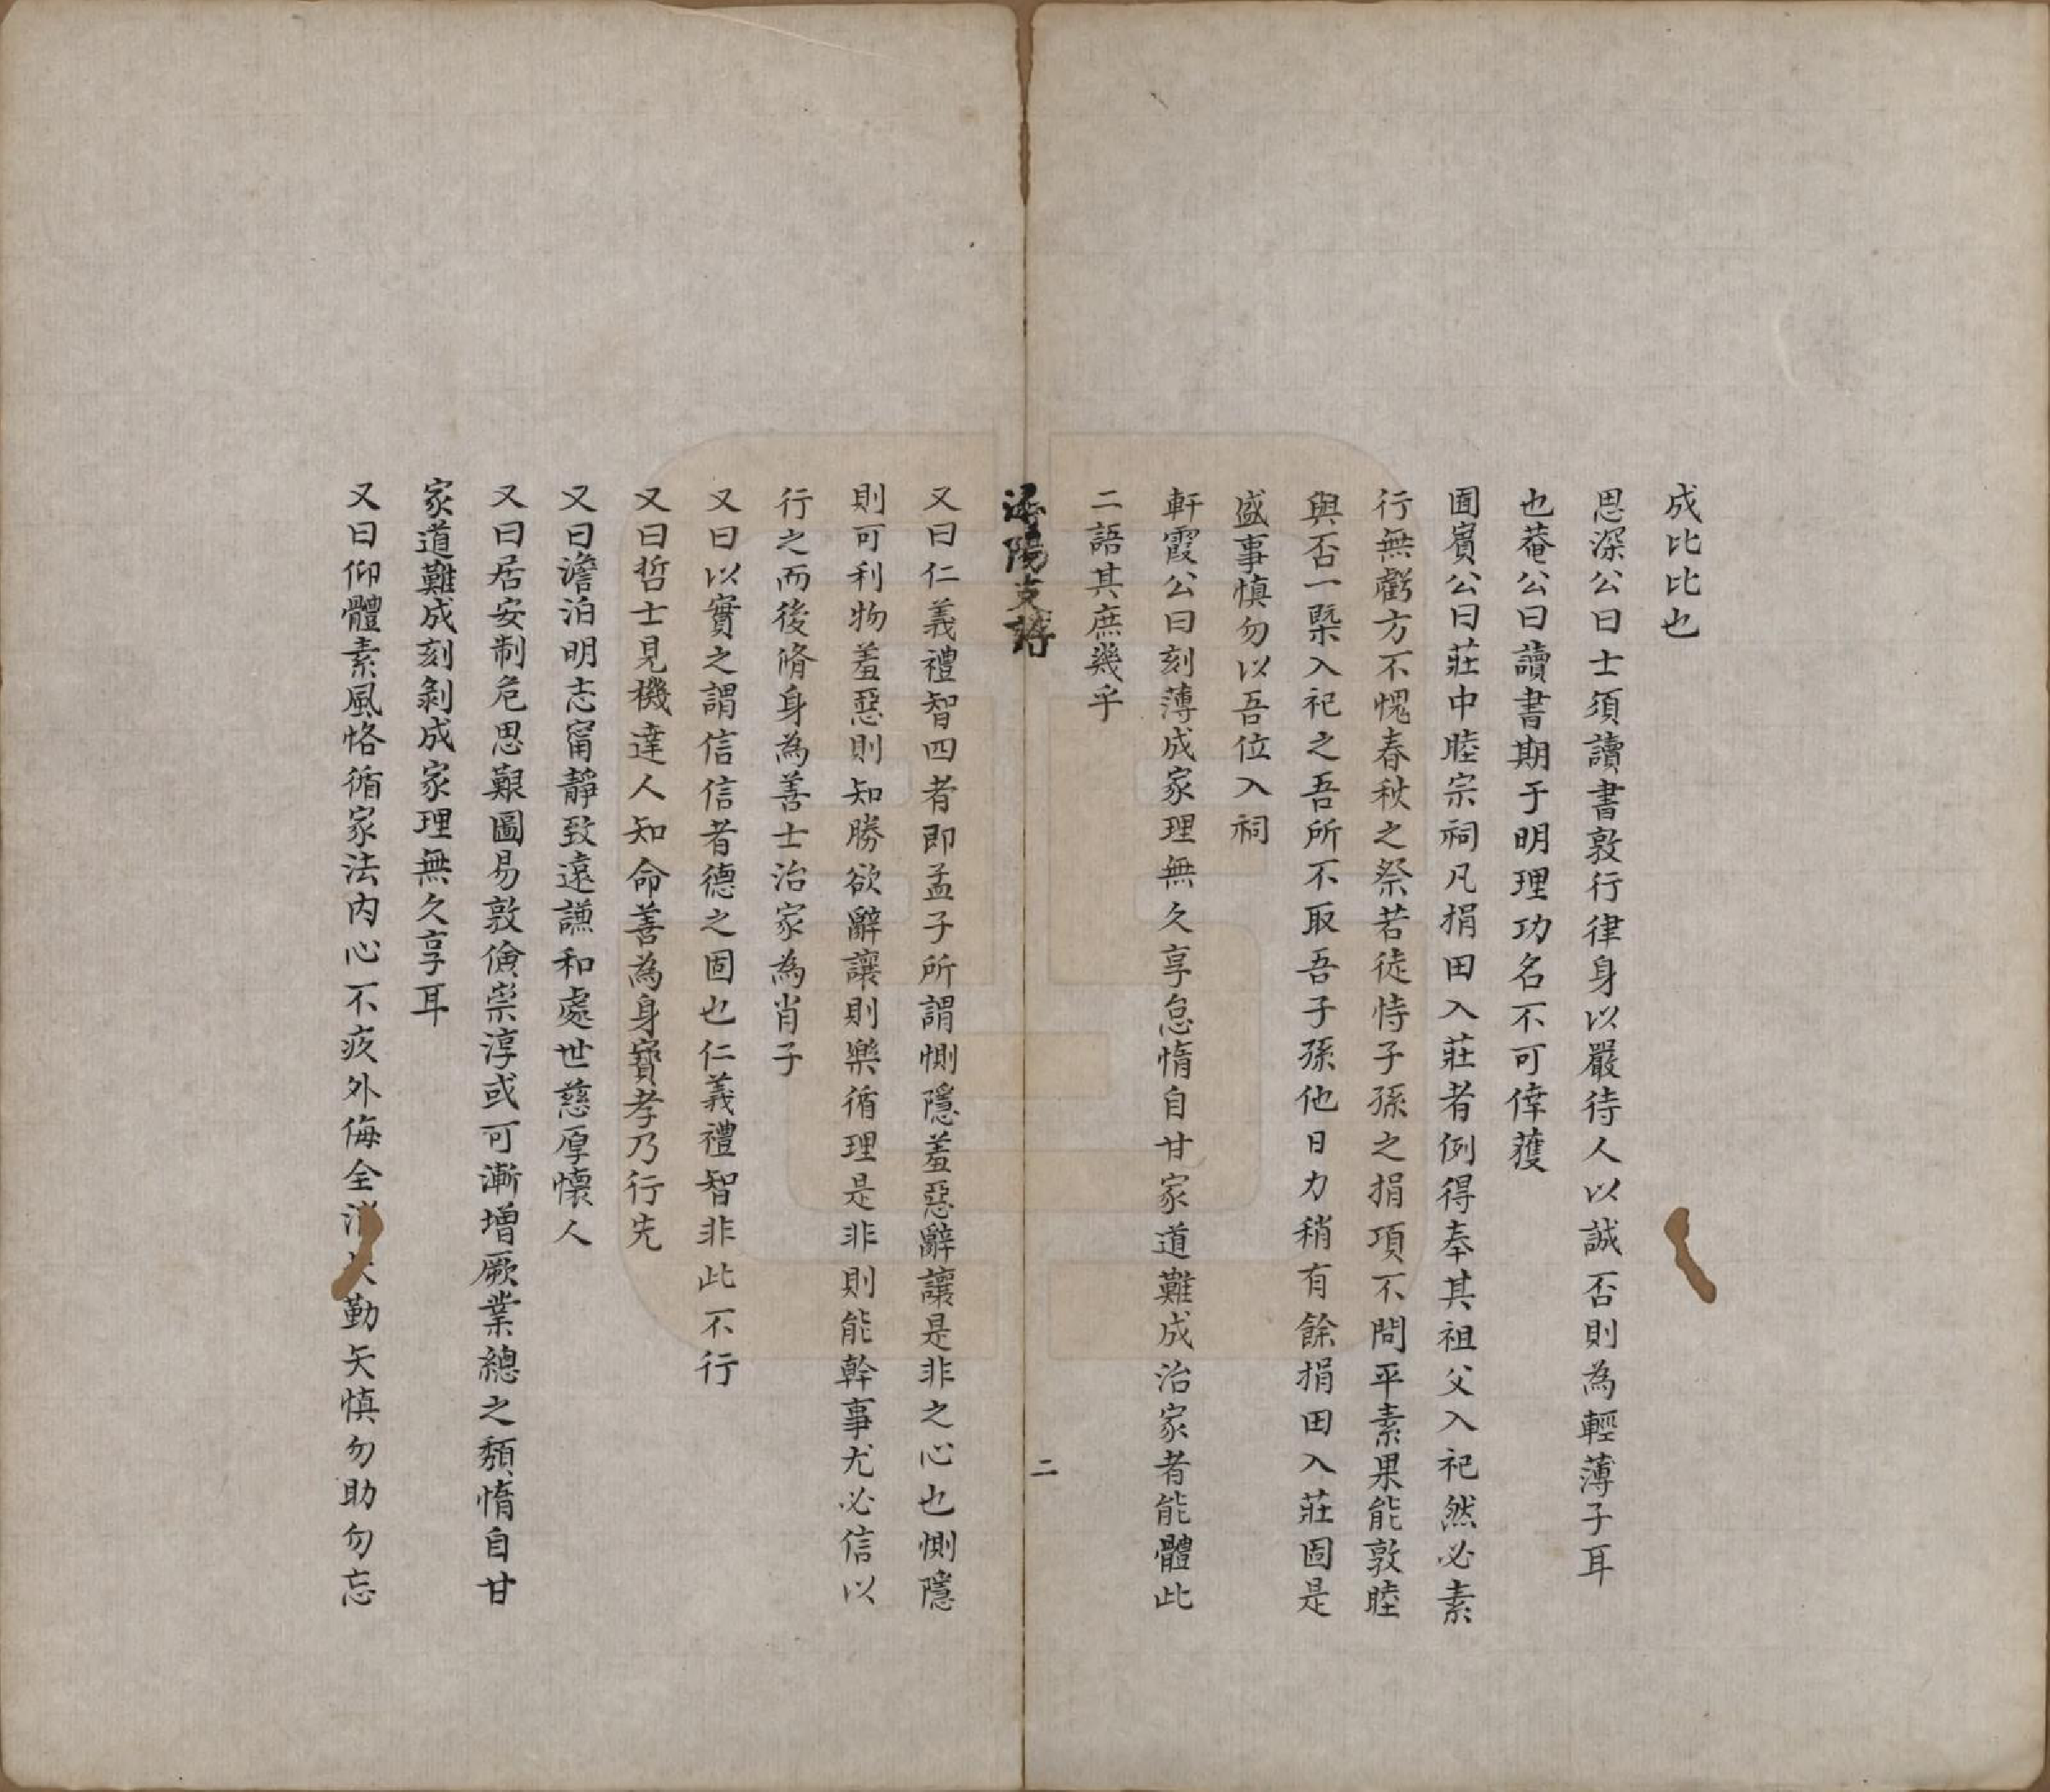 成比比也
思深公曰士須讀書敦行律身以嚴待人以誠否則為輕薄子耳
也菴公曰讀書期于明理功名不可倖獲
囿賓公曰莊中睦宗祠凡捐田入莊者例得奉其祖父入祀然必素
行無虧方不愧春秋之祭若徒恃子孫之捐項不問平素果能敦睦
與否一槩入祀之吾所不取吾子孫他日力稍有餘捐田入莊固是
盛事慎勿以吾位入祠
軒霞公曰刻薄成家理無久享怠惰自甘家道難成治家者能體此
二語其庶幾乎
陽支譜
二
又曰仁義禮智四者即孟子所謂惻隱羞惡辭讓是非之心也惻隱
則可利物羞惡則知勝欲辭讓則樂循理是非則能幹事尤必信以
行之而後脩身為善士治家為肖子
又曰以實之謂信信者德之固也仁義禮智非此不行
又曰哲士見機達人知命善為身寶孝乃行先
又曰澹泊明志甯靜致遠謙和處世慈厚懷人
又曰居安制危思艱圖易敦儉崇淳或可漸增厥業總之頹惰自甘
家道難成刻剝成家理無久享耳
又曰仰體素風恪循家法内心不疚外侮全消勤矢慎勿助勿忘